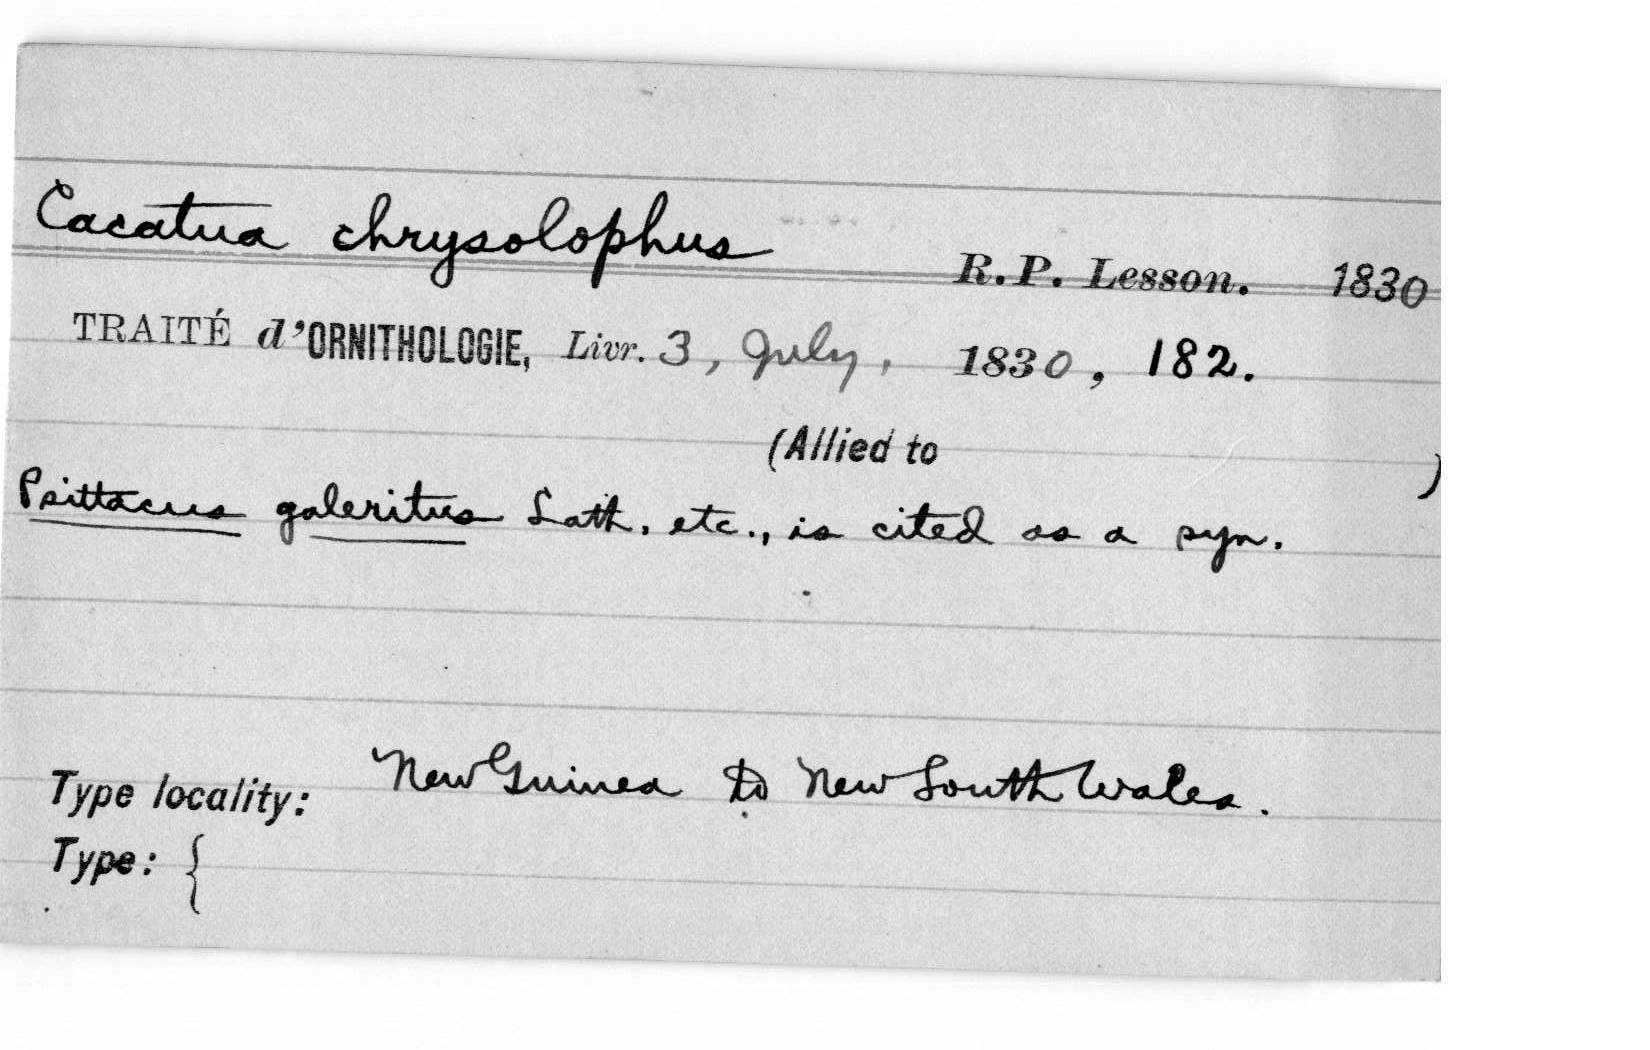 Cacatua chrysolophus R.P. Lesson. 1830
TRAITÉ d'ORNITHOLOGIE, Livr. 3, July, 1830, 182.
(Allied to )
Psittacus galeritus Lath. etc., is cited as a syn.
Type locality: New Guinea to New South Wales.
Type: {